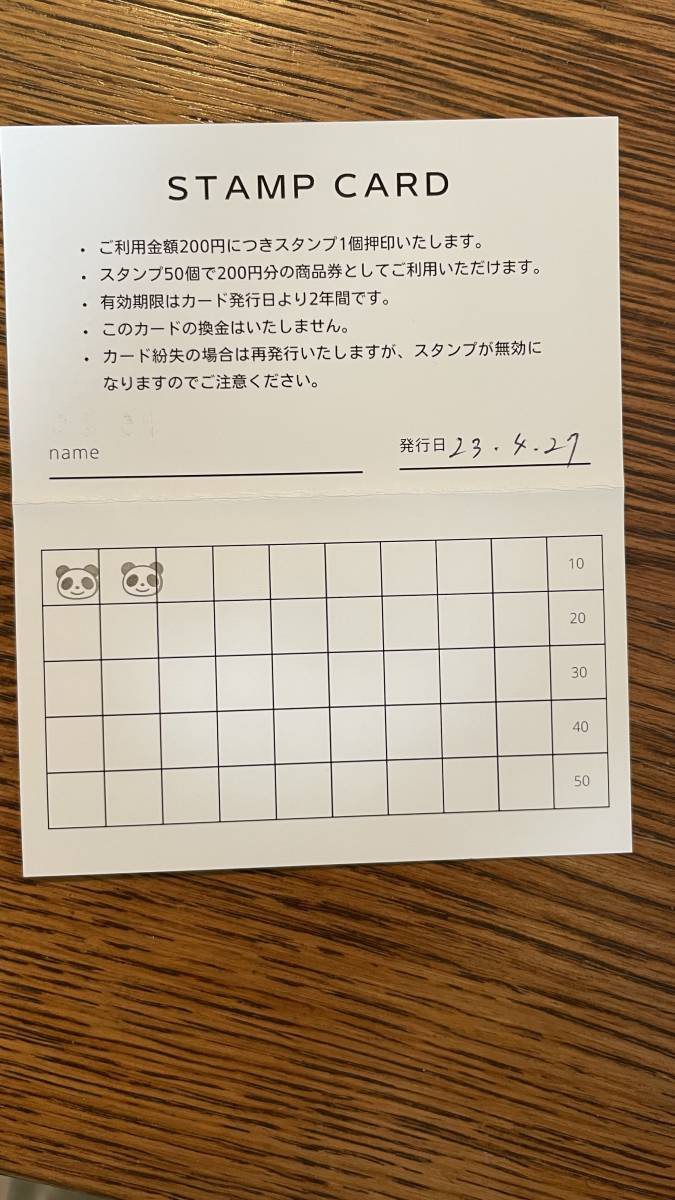 STAMP CARD
・ ご利用金額200円につきスタンプ1個押印いたします。
・ スタンプ50個で200円分の商品券としてご利用いただけます。
・ 有効期限はカード発行日より2年間です。
・ このカードの換金はいたしません。
・ カード紛失の場合は再発行いたしますが、スタンプが無効に
なりますのでご注意ください。
name
発行日 23.4.27
10
20
30
40
50